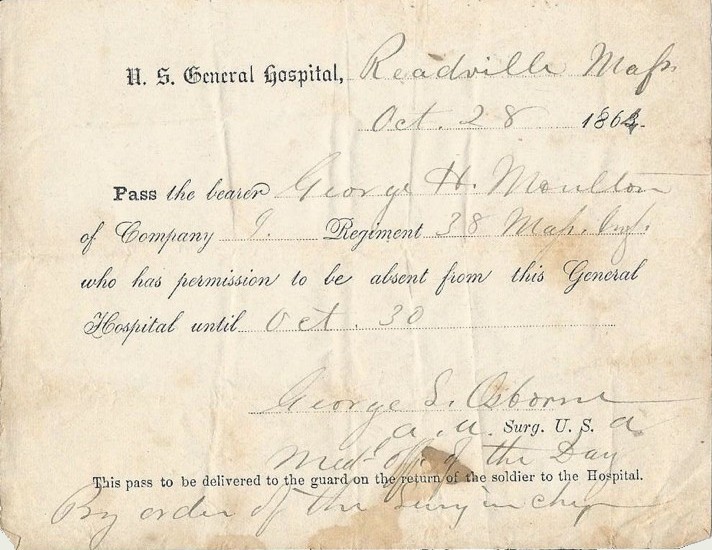 U. S. General Hospital, Readville Mass
Oct. 28 1864.
Pass the bearer George H. Moulton
of Company I. Regiment 38 Mass. Inf.
who has permission to be absent from this General
Hospital until Oct. 30
George S. Osborne
a. a. Surg. U. S. a
Med. Off. of the Day
This pass to be delivered to the guard on the return of the soldier to the Hospital.
By order of the Surg in chf